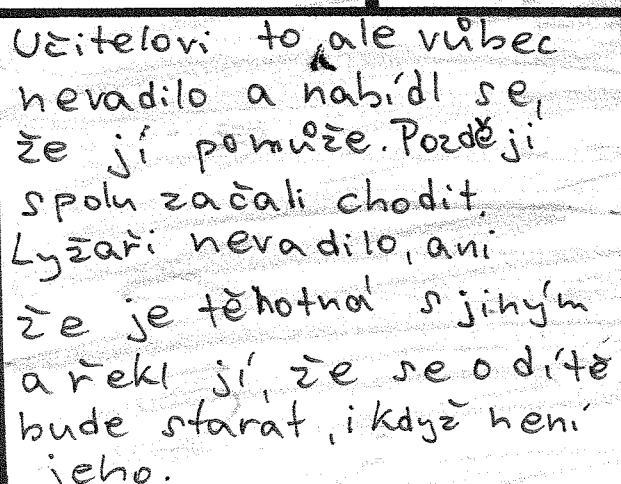 Učitelovi to ale vůbec
nevadilo a nabídl se,
že jí pomůže. Později
spolu začali chodit.
Lyžaři nevadilo, ani
že je těhotná s jiným
a řekl jí, že se o dítě
bude starat, i když není
jeho.